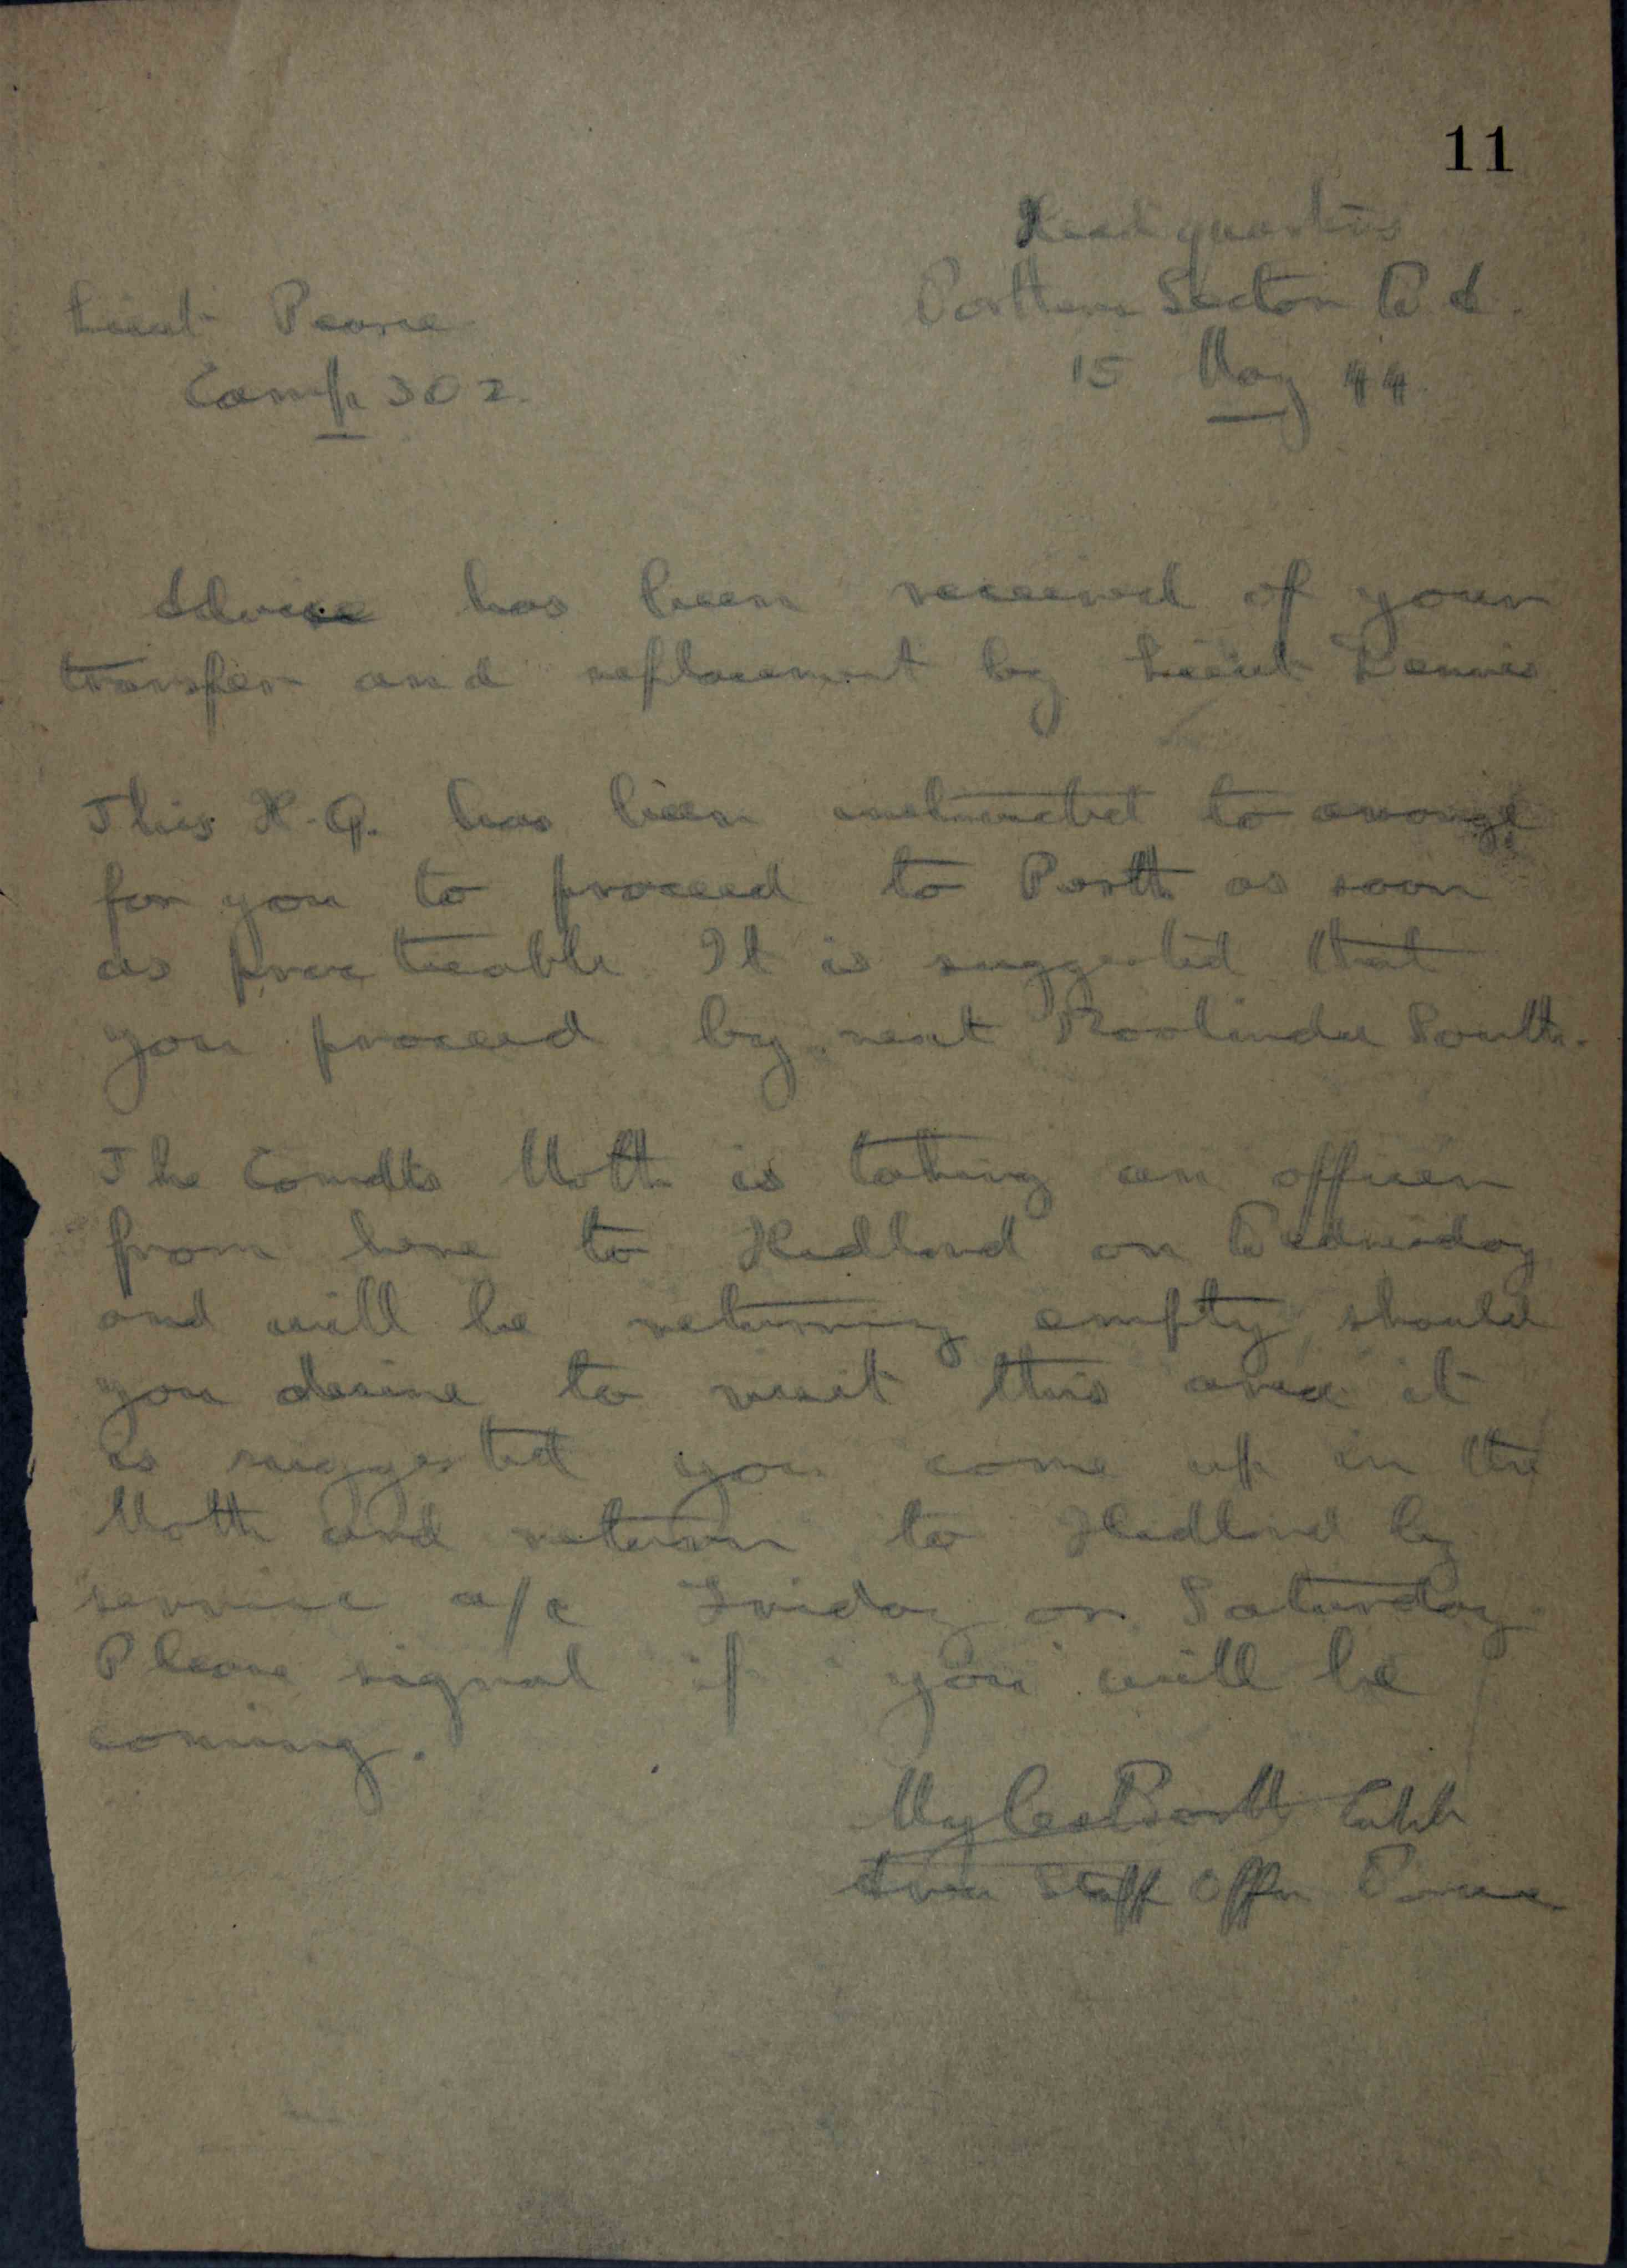 11
Headquarters
Northern Sector W A.
Lieut Pearce
15 May 44.
Camp 302.
Advice has been received of your
transfer and replacement by Lieut Dennis
This H.Q. has been instructed to arrange
for you to proceed to Perth as soon
as practicable. It is suggested that
you proceed by next Koolinda South.
The Comdts Moth is taking an officer
from here to Hedland on Wednesday
and will be returning empty should
you desire to visit this area it
is suggested you come up in the
Moth and return to Hedland by
service a/c Friday or Saturday.
Please signal if you will be
coming.
Capt
Area Staff Offr